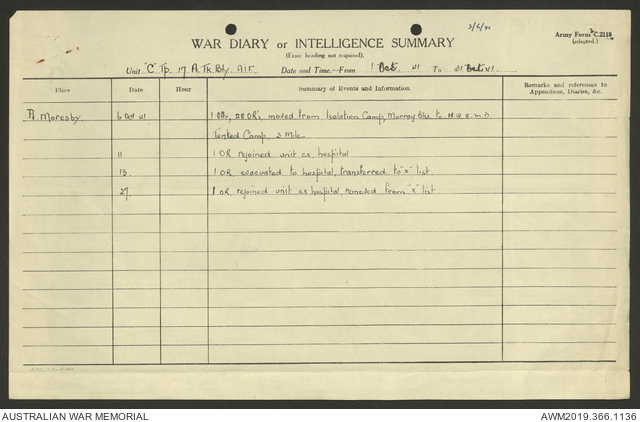 Army Form C.2118
(adapted.)
WAR DIARY or INTELLIGENCE SUMMARY
(Erase heading not required).
Unit "C" Tp. 17 A.Tk. Bty. AIF Date and Time.—From 1 Oct. 41 To 31 Oct. 41
Place Date Hour Summary of Events and Information Remarks and references to Appendices, Diaries, &c.
Pt. Moresby 6 Oct 41 1 Offr, 28 OR's, moved from Isolation Camp, Murray Bks. to H.Q. 8. M.D.
Tented Camp, 3 Mile.
11 1 OR rejoined unit ex hospital
13. 1 OR, evacuated to hospital, transferred to "x" list.
27. 1 OR, rejoined unit ex hospital, removed from "x" list
AUSTRALIAN WAR MEMORIAL AWM2019.366.1136